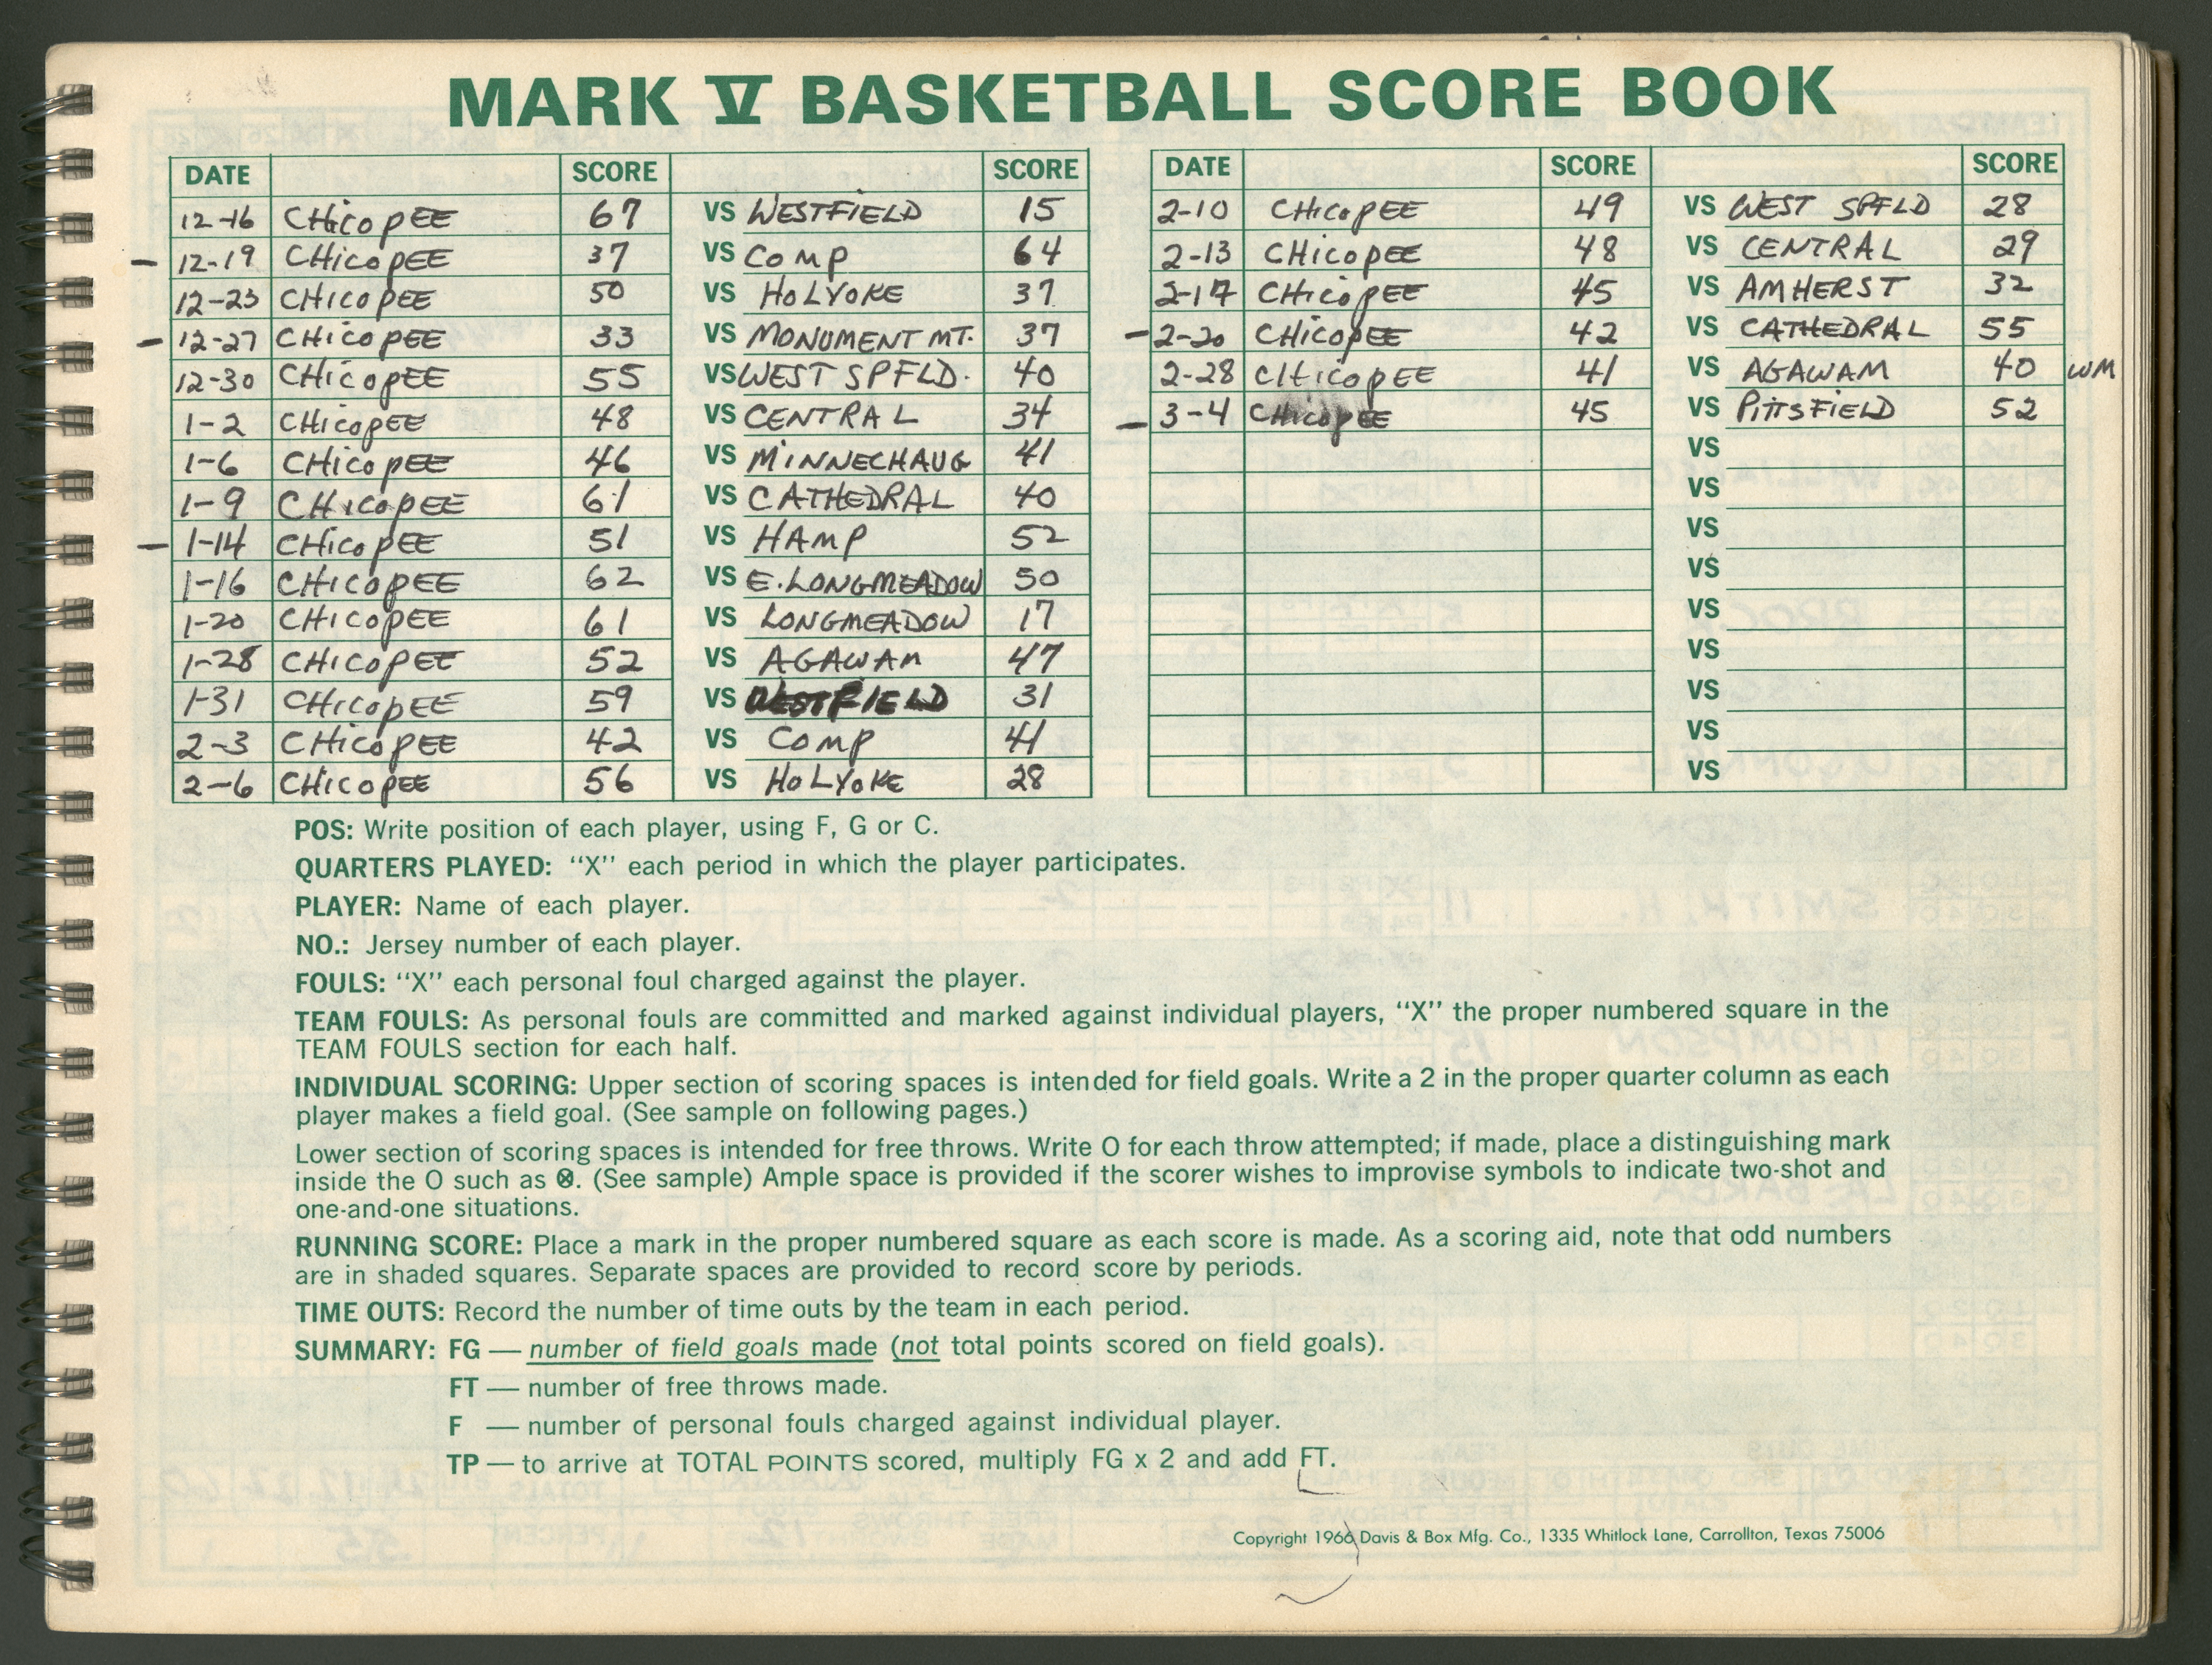 MARK V BASKETBALL SCORE BOOK
DATE SCORE SCORE
12-16 CHicopEE 67 VS WESTFIELD 15
- 12-19 CHicopEE 37 VS Comp 64
12-23 CHicopEE 50 VS HOLYOKE 37
- 12-27 CHicopEE 33 VS MONUMENT MT. 37
12-30 CHicopEE 55 VS WEST SPFLD. 40
1-2 CHicopEE 48 VS CENTRAL 34
1-6 CHicopEE 46 VS MiNNECHAUG 41
1-9 CHicopEE 61 VS CATHEDRAL 40
- 1-14 CHicopEE 51 VS HAMP 52
1-16 CHicopEE 62 VS E. LONGMEADOW 50
1-20 CHicopEE 61 VS LONGMEADOW 17
1-28 CHicopEE 52 VS AGAWAM 47
1-31 CHicopEE 59 VS WESTFIELD 31
2-3 CHicopEE 42 VS Comp 41
2-6 CHicopEE 56 VS HOLYOKE 28
DATE SCORE SCORE
2-10 CHicopEE 49 VS WEST SPFLD 28
2-13 CHicopEE 48 VS CENTRAL 29
2-17 CHicopEE 45 VS AMHERST 32
- 2-20 CHicopEE 42 VS CATHEDRAL 55
2-28 CHicopEE 41 VS AGAWAM 40 WM
- 3-4 CHicopEE 45 VS PiTTSFIELD 52
VS
VS
VS
VS
VS
VS
VS
VS
VS
POS: Write position of each player, using F, G or C.
QUARTERS PLAYED: "X" each period in which the player participates.
PLAYER: Name of each player.
NO.: Jersey number of each player.
FOULS: "X" each personal foul charged against the player.
TEAM FOULS: As personal fouls are committed and marked against individual players, "X" the proper numbered square in the
TEAM FOULS section for each half.
INDIVIDUAL SCORING: Upper section of scoring spaces is intended for field goals. Write a 2 in the proper quarter column as each
player makes a field goal. (See sample on following pages.)
Lower section of scoring spaces is intended for free throws. Write O for each throw attempted; if made, place a distinguishing mark
inside the O such as ⊗. (See sample) Ample space is provided if the scorer wishes to improvise symbols to indicate two-shot and
one-and-one situations.
RUNNING SCORE: Place a mark in the proper numbered square as each score is made. As a scoring aid, note that odd numbers
are in shaded squares. Separate spaces are provided to record score by periods.
TIME OUTS: Record the number of time outs by the team in each period.
SUMMARY: FG — number of field goals made (not total points scored on field goals).
FT — number of free throws made.
F — number of personal fouls charged against individual player.
TP — to arrive at TOTAL POINTS scored, multiply FG x 2 and add FT.
Copyright 1966 Davis & Box Mfg. Co., 1335 Whitlock Lane, Carrollton, Texas 75006